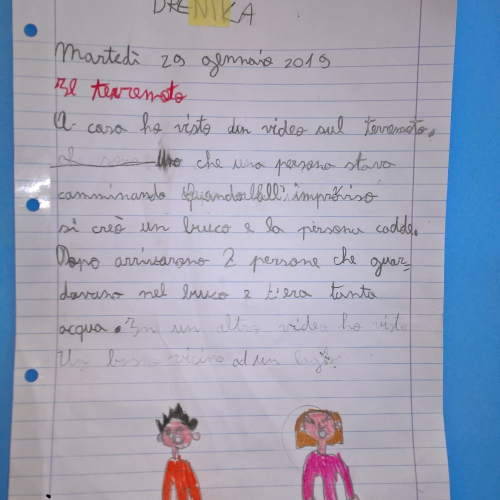 DRENIKA
Martedì 29 gennaio 2019
Il terremoto
A casa ho visto dun video sul terremoto.
che una persona stava
camminando quando all' improviso
si creò un buco e la persona cadde.
Dopo arrivarono 2 persone che guar-
davano nel buco e c'era tanta
acqua. In un altro video ho visto
Un bosco vicino ad un lago.